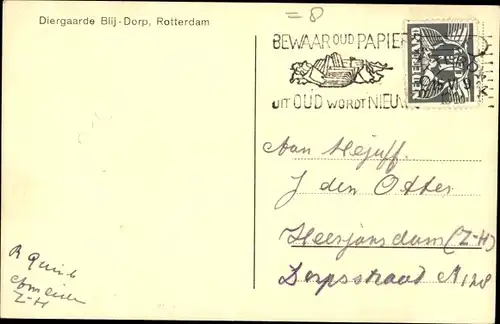 Diergaarde Blij-Dorp, Rotterdam
= 8
BEWAAR OUD PAPIER
UIT OUD WORDT NIEUW
NEDERLAND
Aan Mejuff.
J den Otter
Heerjansdam (Z-H)
Dorpsstraat N 128
Z-H